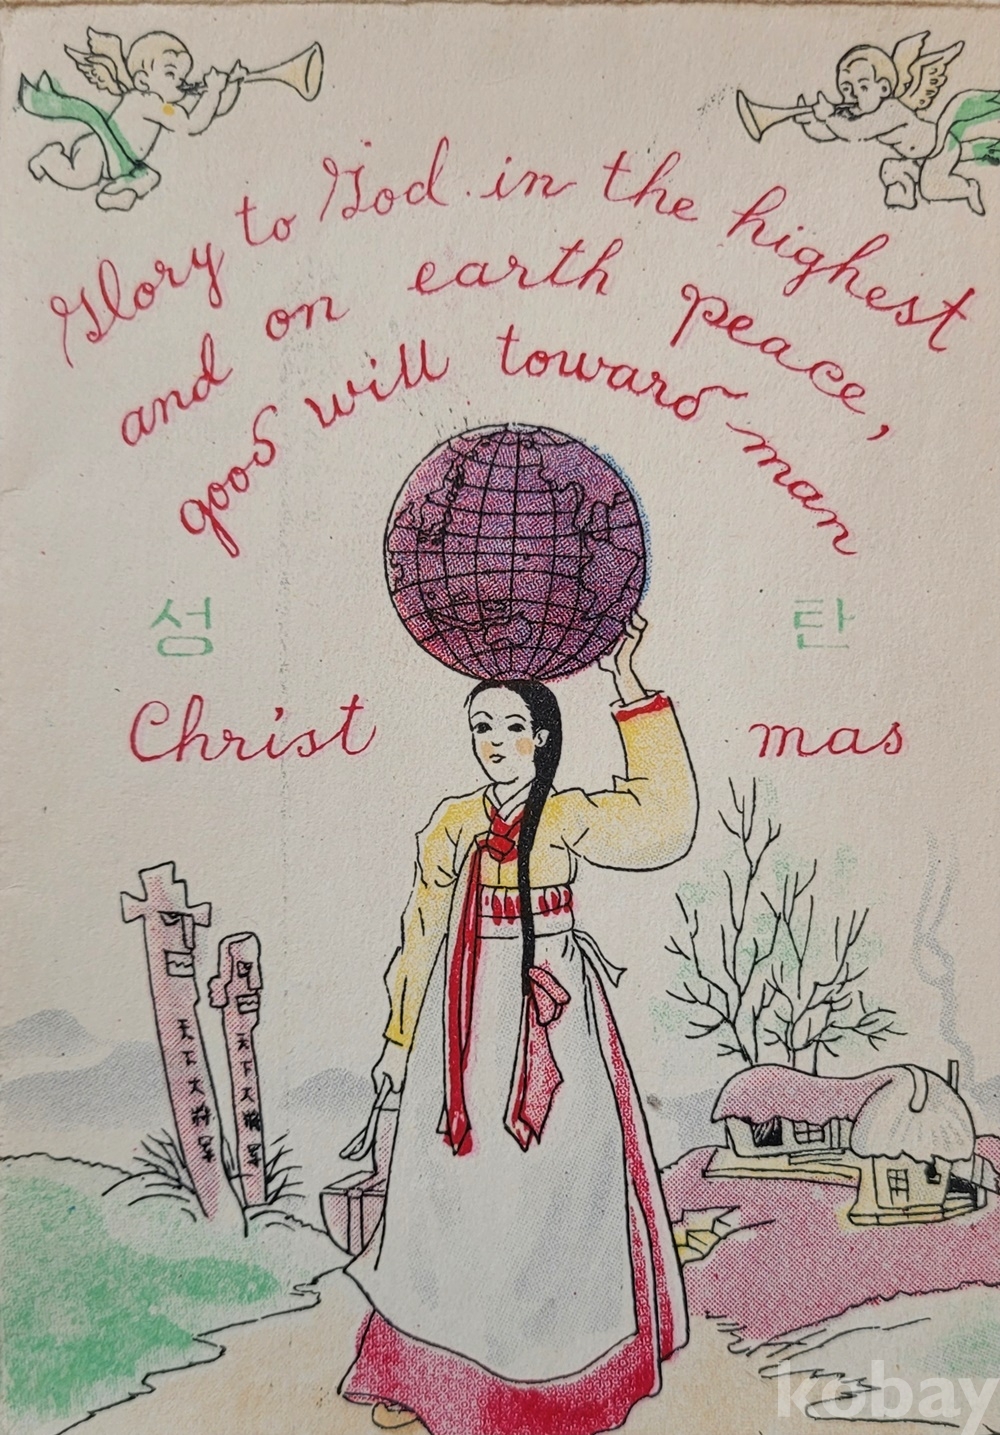 Glory to God in the highest
and on earth peace,
good will toward man
성 탄
Christ mas
天下大將軍
天下大將軍
kobay